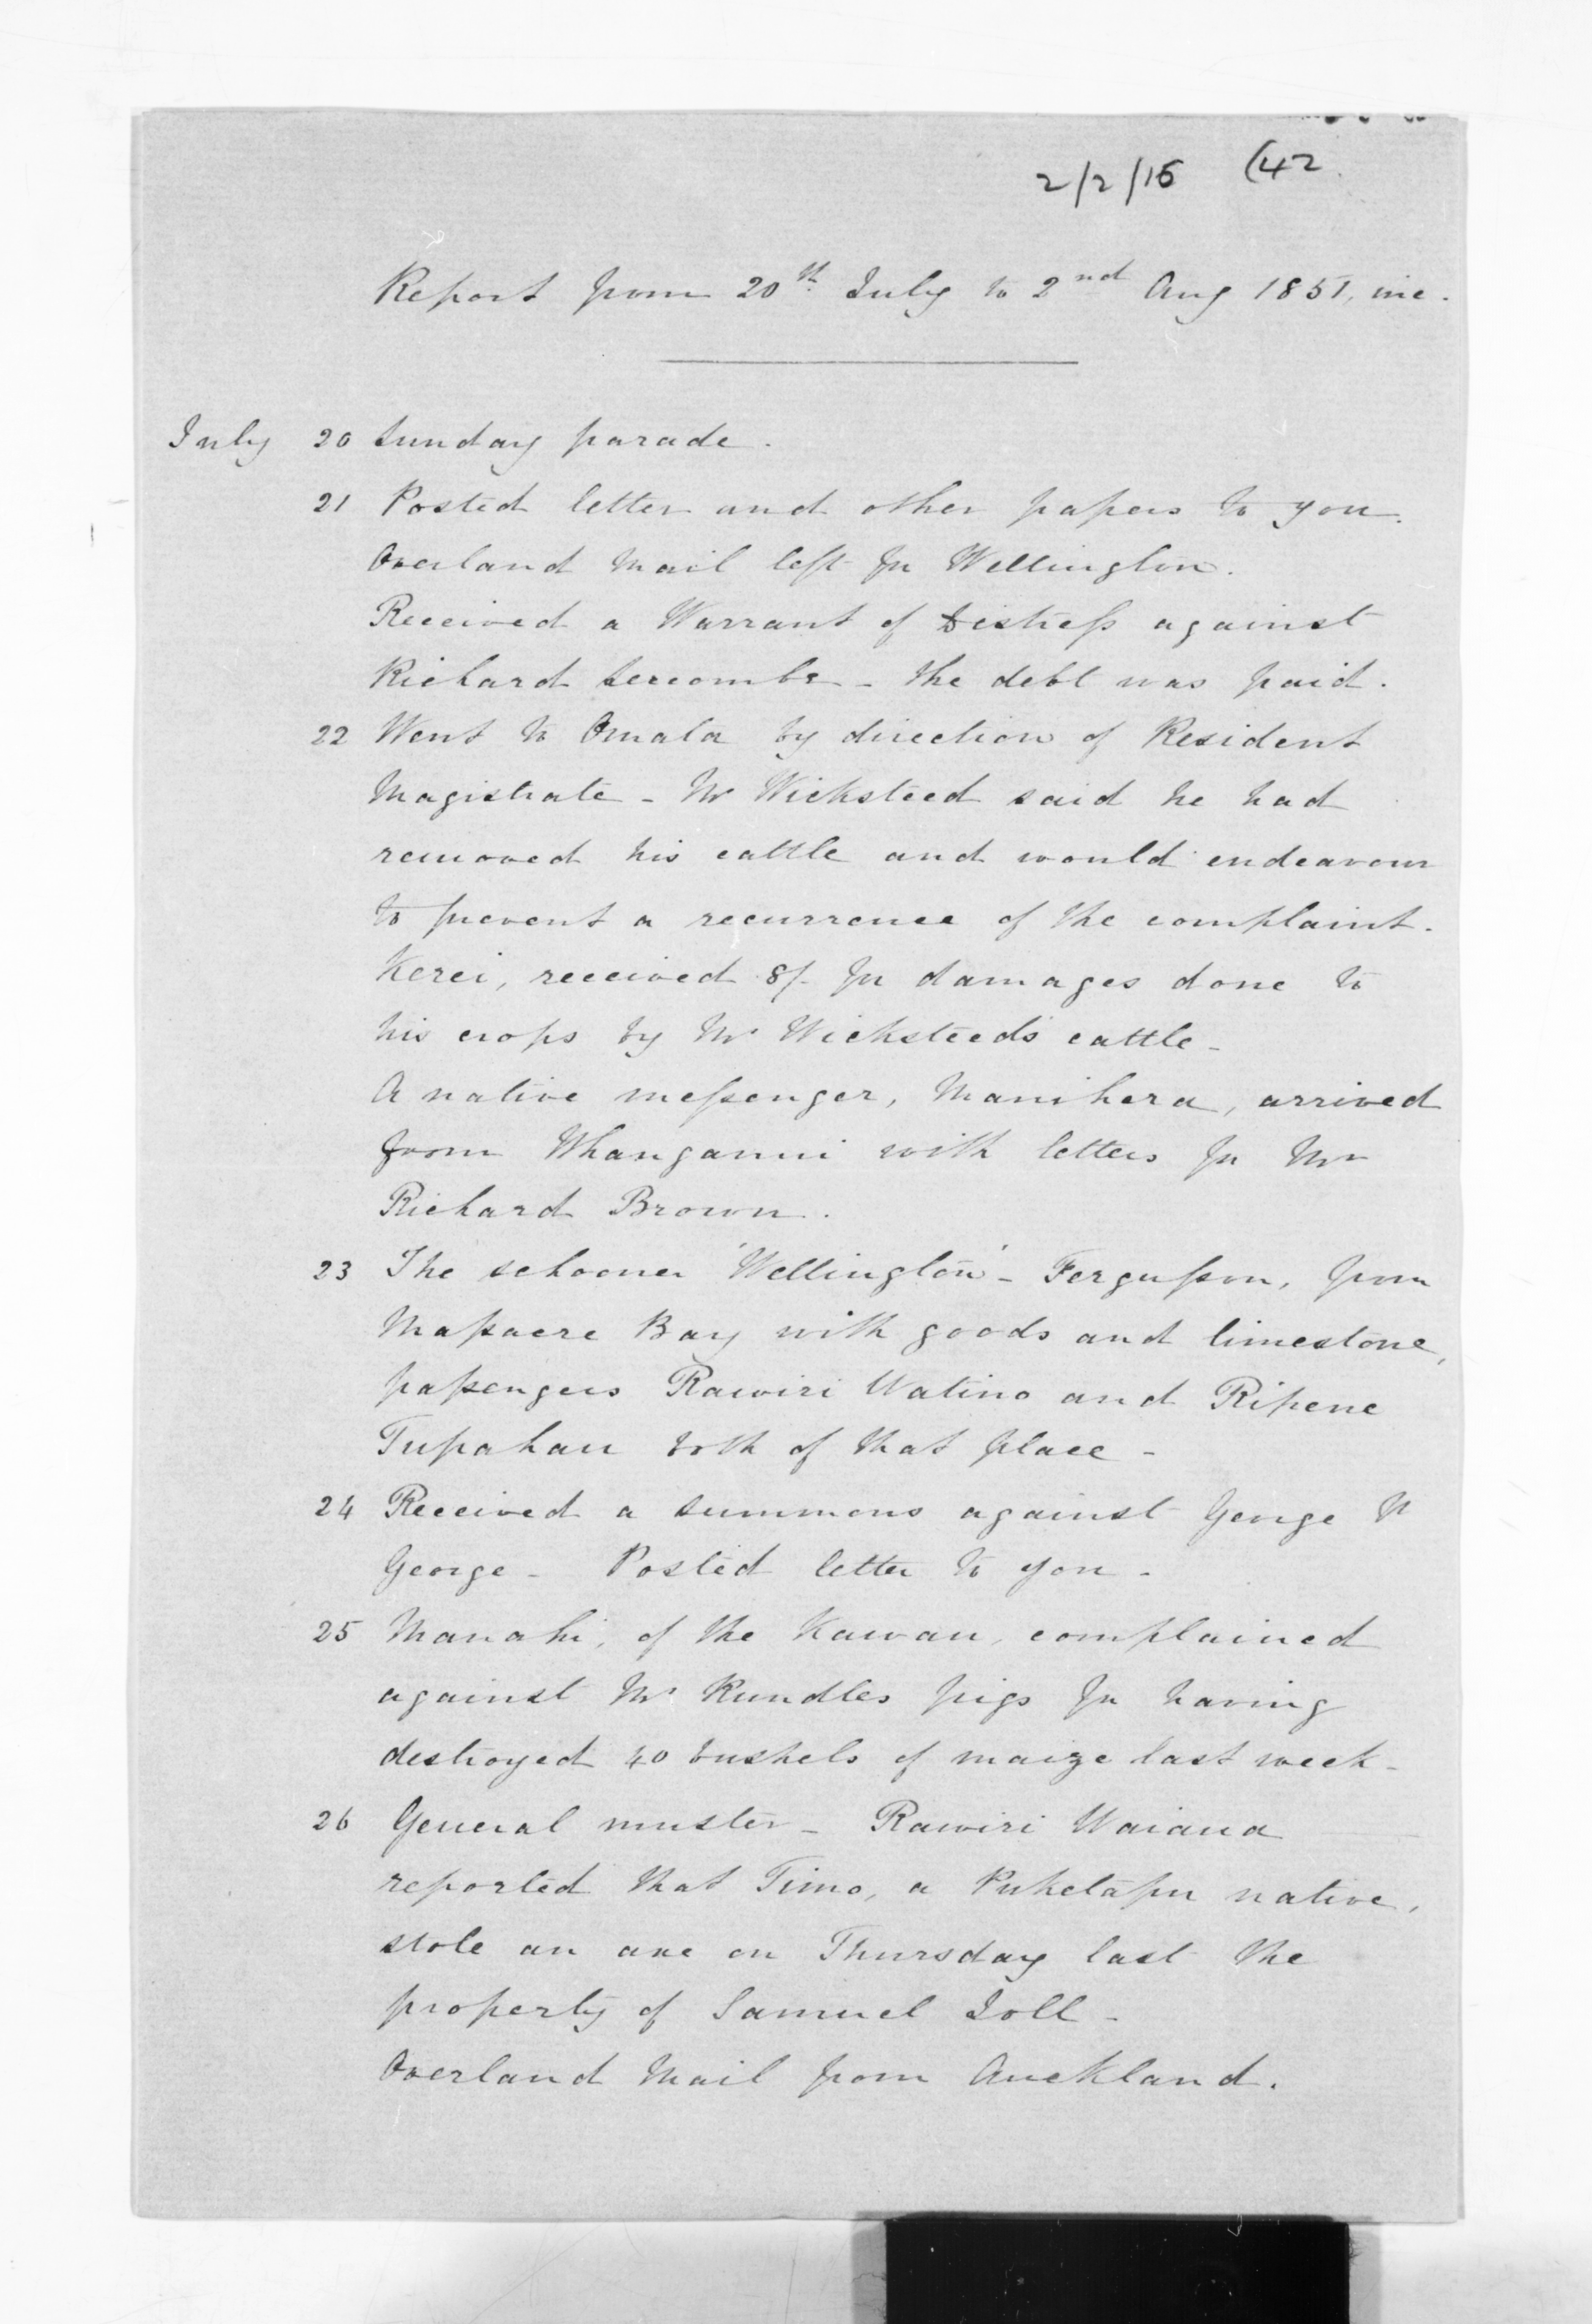 2/2/15 (42
Report from 20th July to 2nd Aug 1851, inc.
July 20 Sunday parade.
21 Posted letter and other papers to you.
Overland Mail left for Wellington.
Received a Warrant of Distress against
Richard Sercombe - the debt was paid.
22 Went to Omata by direction of Resident
Magistrate - Mr Wicksteed said he had
removed his cattle and would endeavour
to prevent a recurrence of the complaint.
Kerei, received 8/- for damages done to
his crops by Mr Wicksteed's cattle -
A native messenger, Manihera, arrived
from Whanganui with letters for Mr
Richard Brown.
23 The schooner 'Wellington' - Fergusson, from
Massacre Bay with goods and limestone,
passengers Rawiri Watino and Ripene
Tupahau both of that place -
24 Received a summons against George
George - Posted letter to you -
25 Manahi, of the Kawau, complained
against Mr Rundles pigs for having
destroyed 40 bushels of maize last week -
26 General muster - Rawiri Waiaua
reported that Timo, a Puketapu native,
stole an axe on Thursday last the
property of Samuel Joll -
Overland Mail from Auckland.